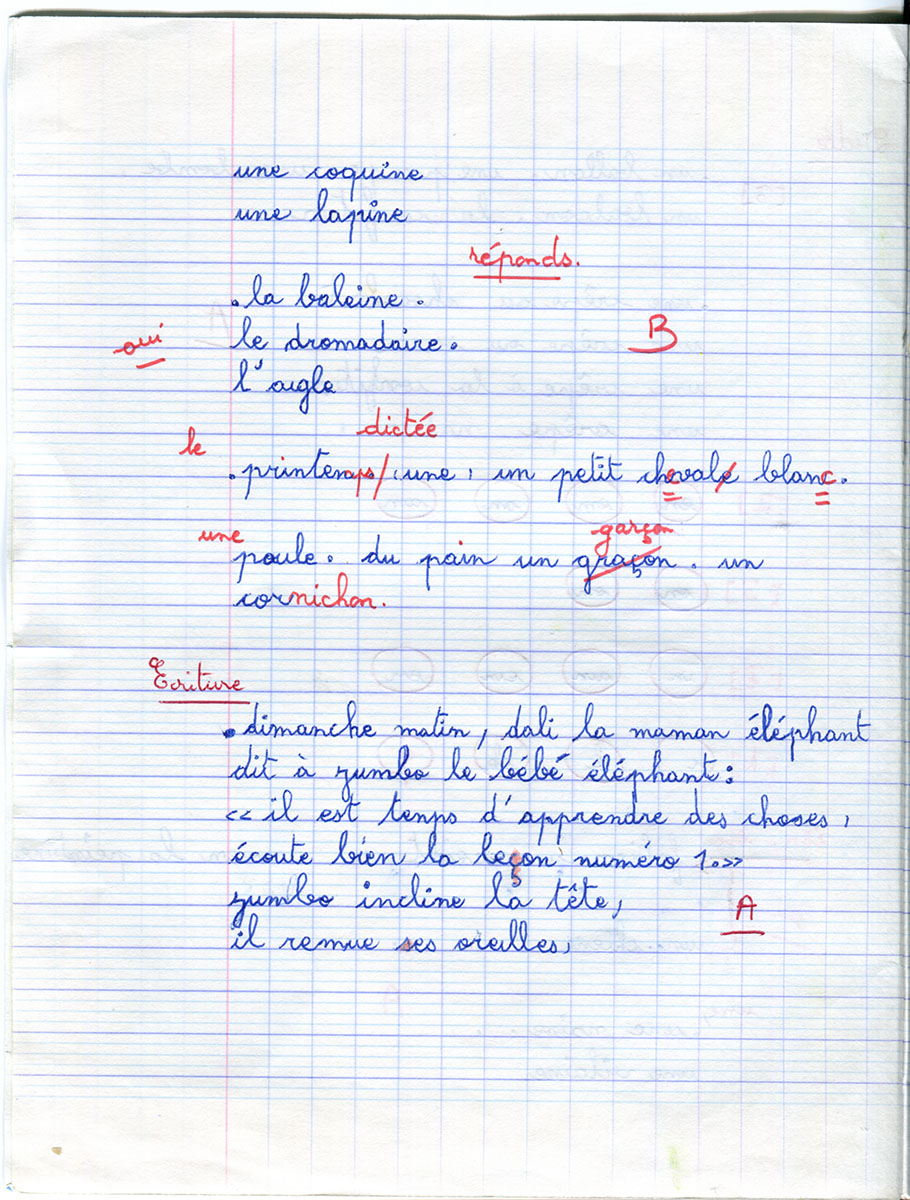 une coquine
une lapine
réponds.
. la baleine.
oui le dromadaire. B
l'aigle
dictée
le
. printemps/ une, un petit chevale blanc.
une garçon
poule. du pain un graçon. un
cornichon.
Ecriture
. dimanche matin, dali la maman éléphant
dit à zumbo le bébé éléphant:
<< il est temps d'apprendre des choses,
écoute bien la leçon numéro 1.>>
zumbo incline la tête,
A
il remue ses oreilles,